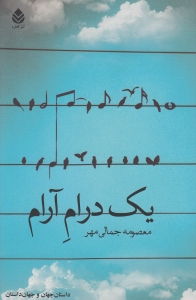 یک درامِ آرام
معصومه جمالی‌مهر
داستان جهان و جهان داستان